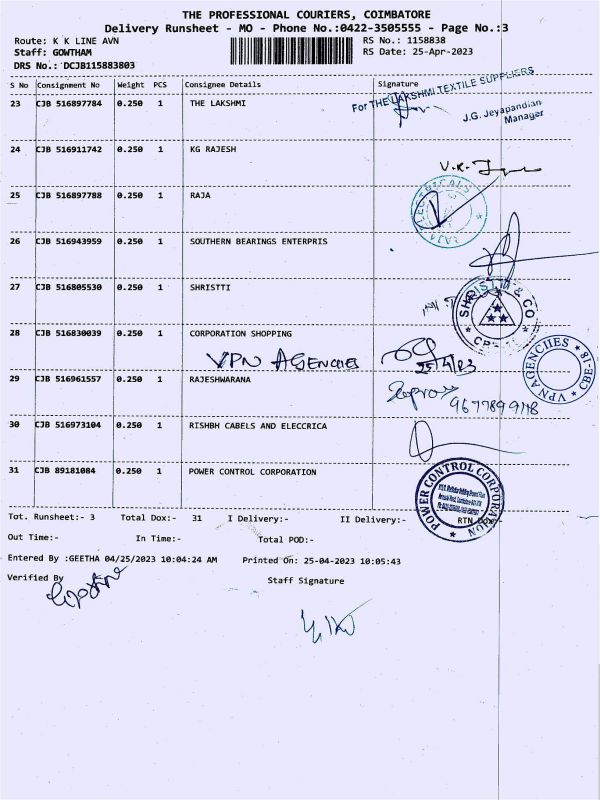 THE PROFESSIONAL COURIERS, COIMBATORE
Delivery Runsheet - MO - Phone No.:0422-3505555 - Page No.:3
Route: K K LINE AVN RS No.: 1158838
Staff: GOWTHAM RS Date: 25-Apr-2023
DRS No.: DCJB115883803
S No Consignment No Weight PCS Consignee Details Signature
For THE LAKSHMI TEXTILE SUPPLIERS
23 CJB 516897784 0.250 1 THE LAKSHMI
J.G. Jeyapandian
Manager
24 CJB 516911742 0.250 1 KG RAJESH
V.K.
25 CJB 516897788 0.250 1 RAJA
RAJA ELECTRICALS
26 CJB 516943959 0.250 1 SOUTHERN BEARINGS ENTERPRIS
27 CJB 516805530 0.250 1 SHRISTTI
SHRISTTI & CO
28 CJB 516830039 0.250 1 CORPORATION SHOPPING
VPN AGENCIES 25/4/23
VPN AGENCIES CBE-18
29 CJB 516961557 0.250 1 RAJESHWARANA
30 CJB 516973104 0.250 1 RISHBH CABELS AND ELECCRICA
31 CJB 89181084 0.250 1 POWER CONTROL CORPORATION
POWER CONTROL CORPORATION
Tot. Runsheet:- 3 Total Dox:- 31 I Delivery:- II Delivery:- RTN Dox:-
Out Time:- In Time:- Total POD:-
Entered By :GEETHA 04/25/2023 10:04:24 AM Printed On: 25-04-2023 10:05:43
Verified By Staff Signature